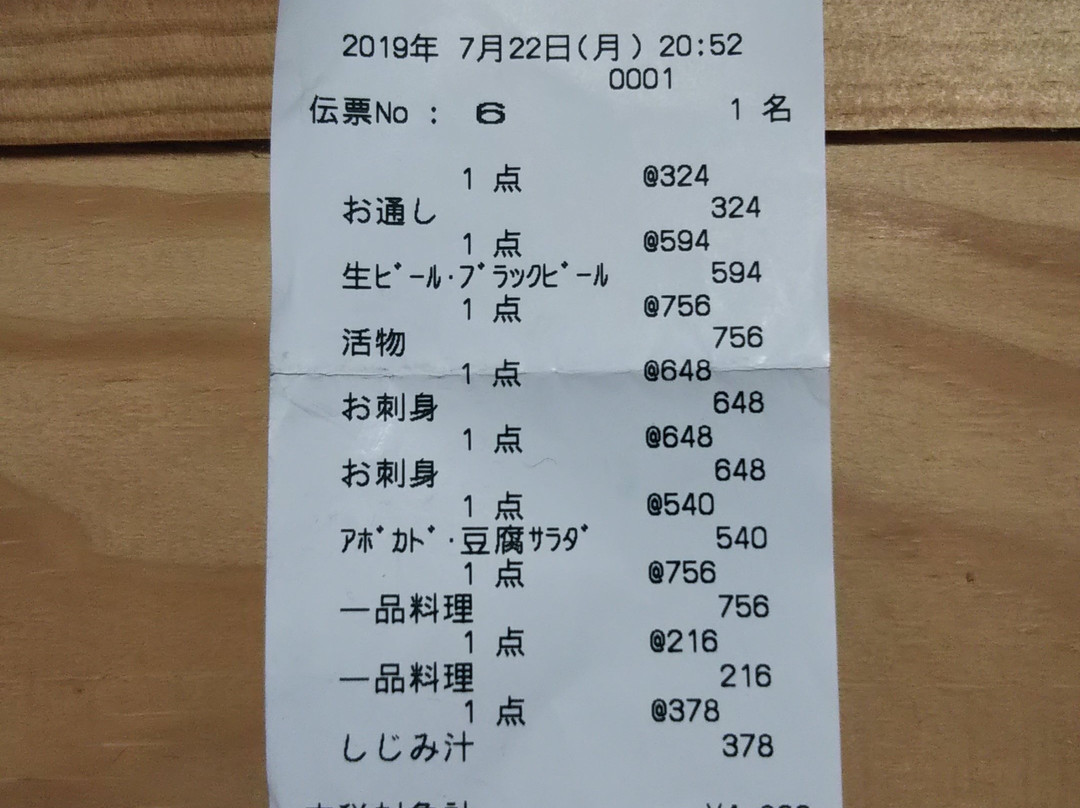 2019年 7月22日(月) 20:52
0001
伝票No : 6 1 名
1 点 @324
お通し 324
1 点 @594
生ﾋﾞｰﾙ･ﾌﾞﾗｯｸﾋﾞｰﾙ 594
1 点 @756
活物 756
1 点 @648
お刺身 648
1 点 @648
お刺身 648
1 点 @540
ｱﾎﾞｶﾄﾞ･豆腐ｻﾗﾀﾞ 540
1 点 @756
一品料理 756
1 点 @216
一品料理 216
1 点 @378
しじみ汁 378